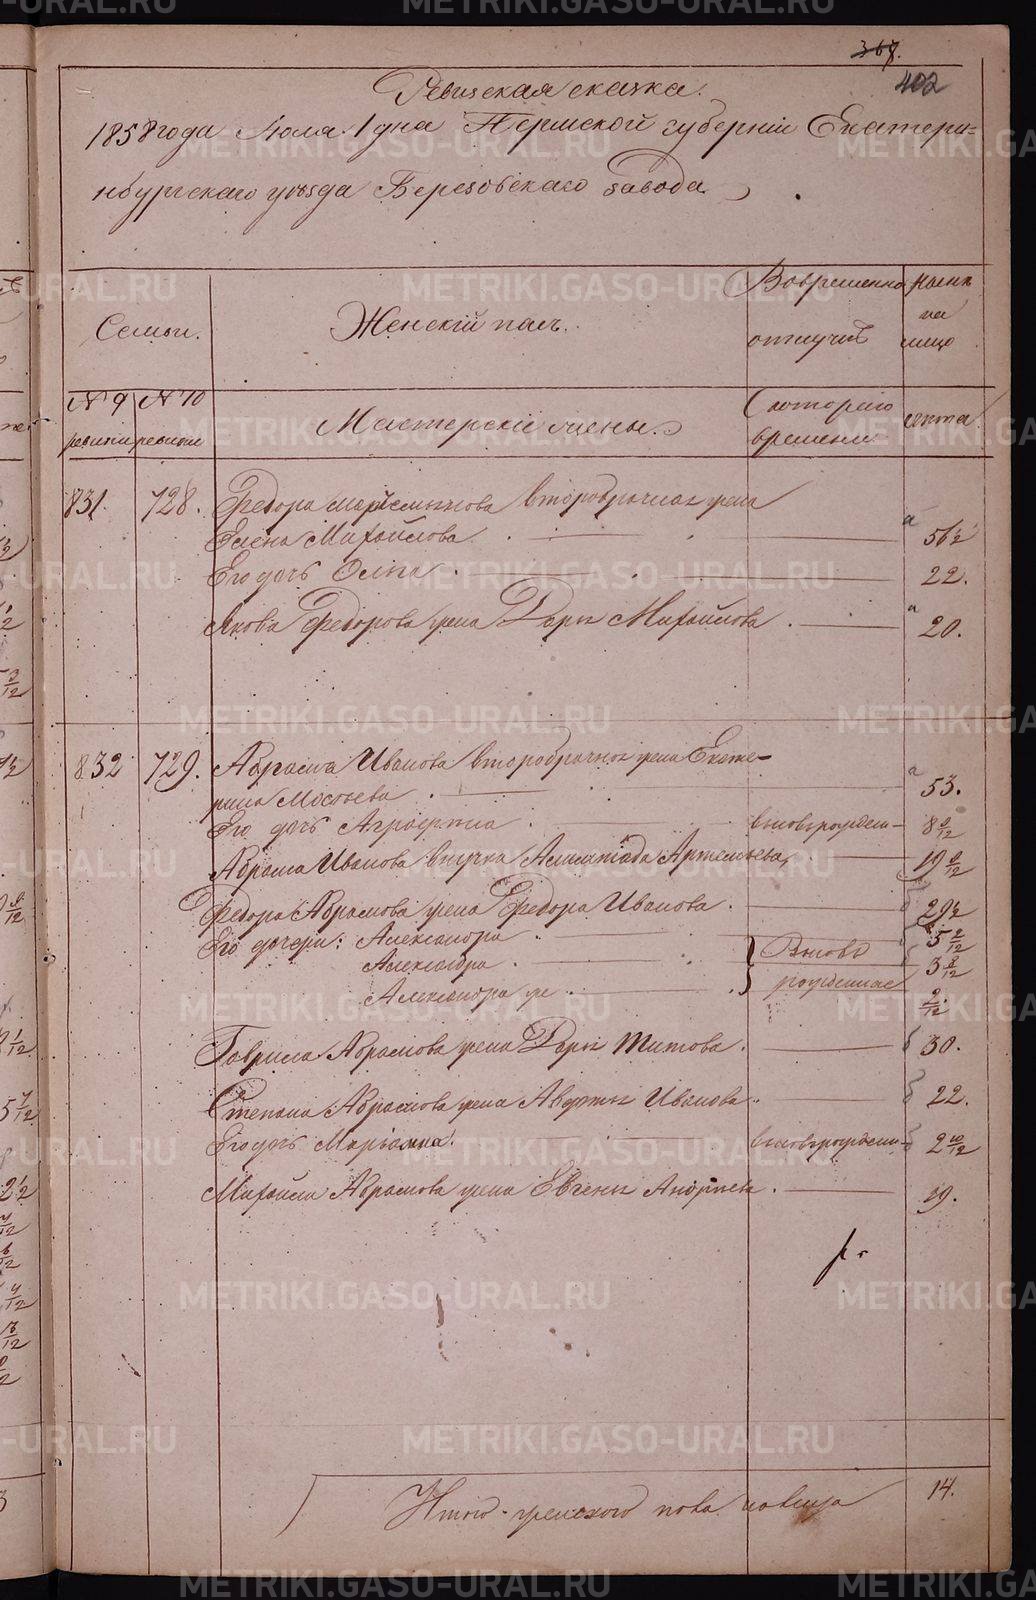 367.
402
Ревизская сказка.
1858 года Июля 1 дня Пермской губернии Екатерин-
нбургскаго уезда Березовскаго завода
Семьи.
Женскій полъ.
Вовременно
отлучке
ныне
на
лицо
№ 9
ревизіи
№ 10
ревизіи
Мастерскіе жены.
Съ котораго
времени
лета
831. 728. Федора второбрачная жена
Елена Михайлова 56 1/2
Его дочь Ольга 22.
Якова Федорова жена Дарья Михайлова 20.
832 729. Абрама Иванова второбрачная жена Екате-
рина 53.
Его дочь Аграфена вновьрожден- 8 9/12
Абрама Иванова внучка Артемьева 19 9/12
Федора Абрамова жена Федора Иванова 29 1/2
Его дочери: Александра 5 2/12
Александра Вновь 3 8/12
Александра же рожденные 2/12
Гаврила Абрамова жена Дарья Титова 30.
Степана Абрамова жена Авдотья Иванова 22.
Его дочь Маріамна. вновьрожден- 2 10/12
Михайла Абрамова жена Евгенья Андреева 19.
Итого женского пола налицо 14.
METRIKI.GASO-URAL.RU